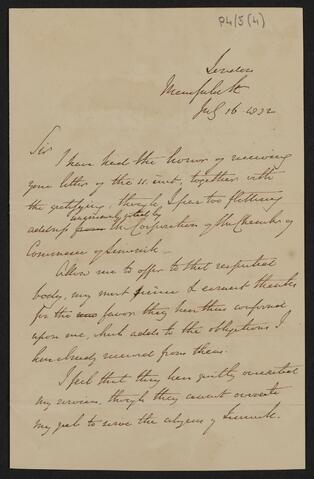 P4/5(4)
London
July 16 1832
Sir
I have had the honor of receiving
your letter of the 11. inst, together with
the gratifying, though, I fear too flattering
unanimously voted by
address from the Corporation of the Chamber of
Commerce of Limerick.
Allow me to offer to that respected
body, my most sincere & earnest thanks
for the favor they have thus conferred
upon me, which adds to the obligations I
have already received from them.
I feel that they have greatly overrated
my services, though they cannot overrate
my zeal to serve the citizens of Limerick.